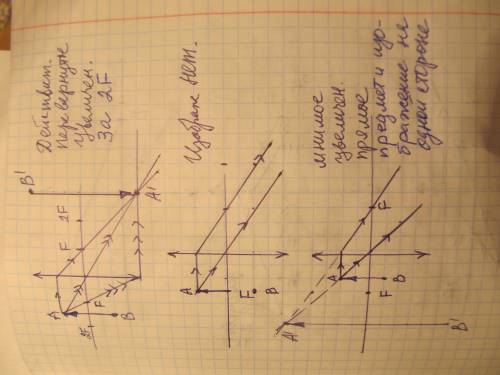 Действит.
перевернутое
увеличен.
За 2F
B'
2F
F
A'
A
F
B
2F
Изображ нет.
A
F
B
мнимое
увеличен.
прямое
предмет и изо-
бражение на
одной стороне
F
A
B
F
A'
B'